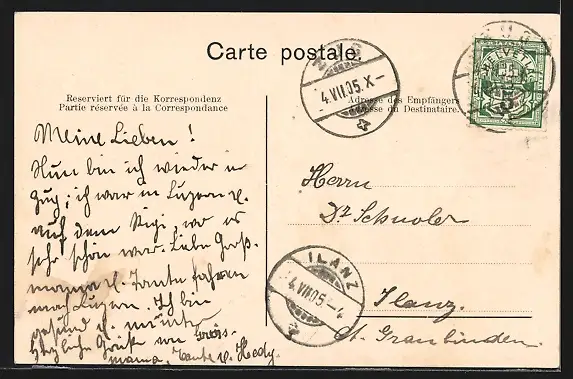 Carte postale.
Reserviert für die Korrespondenz
Partie réservée à la Correspondance
Adresse des Empfängers
Adresse du Destinataire.
HELVETIA
ZUG
4.VII.05.X-
Meine Lieben!
Nun bin ich wieder in
Zug; ich war in Luzern u.
auf dem Rigi, wo es
sehr schön war. Liebe Groß-
mama u. Tante fahren
nach Luzern. Ich bin
gesund u. munter
Herzliche Grüße von Gross-
mama, Tante u. Hedy.
Herrn
Dr Schuoler
Ilanz.
Ct. Graubünden.
ILANZ
4.VII.05.-4